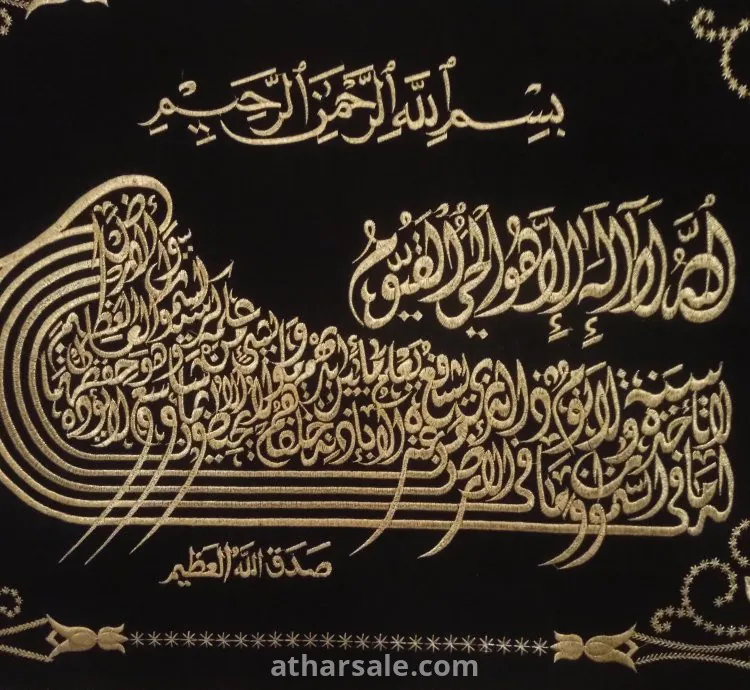 بِسْمِ ٱللَّهِ ٱلرَّحْمَٰنِ ٱلرَّحِيمِ
ٱللَّهُ لَا إِلَٰهَ إِلَّا هُوَ الْحَيُّ الْقَيُّومُ
لا تأخذه سنة ولا نوم له ما في السموات وما في الأرض
من ذا الذي يشفع عنده إلا بإذنه يعلم ما بين أيديهم وما خلفهم
ولا يحيطون بشيء من علمه إلا بما شاء وسع كرسيه السموات والأرض
ولا يؤوده حفظهما وهو العلي العظيم
صَدَقَ اللَّهُ الْعَظِيم
atharsale.com